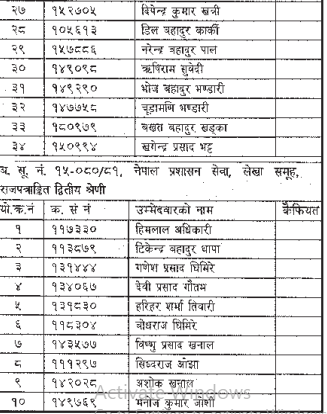 २७ १५२७०५ दिपेन्द्र कुमार खत्री
२८ १०५६१३ डिल बहादुर कार्की
२९ १५७८८६ नरेन्द्र बहादुर पाल
३० १४९०९८ ऋषिराम सुवेदी
३१ १४९२९० भोज बहादुर भण्डारी
३२ १४७७५८ चूडामणि भण्डारी
३३ १८०९७९ बखत बहादुर खड्का
३४ १५०९९४ खगेन्द्र प्रसाद भट्ट
ञ. सू. नं. १५-०८०/८१, नेपाल प्रशासन सेवा, लेखा समूह,
राजपत्राङ्कित द्वितीय श्रेणी
यो.क्र.नं क. सं नं उम्मेदवारको नाम कैफियत
१ ११७३३० हिमलाल अधिकारी
२ ११३८७९ टिकेन्द्र बहादुर थापा
३ १३१४४४ गणेश प्रसाद घिमिरे
४ १३४०६७ देवी प्रसाद गौतम
५ १३१८३० हरिहर शर्मा तिवारी
६ ११८३०४ बोधराज घिमिरे
७ १४३५७७ विष्णु प्रसाद खनाल
८ १११२९७ सिध्दराज ओझा
९ १४२०२८ अशोक खनाल
१० १४९७६९ मनोज कुमार जोशी
Activate Windows